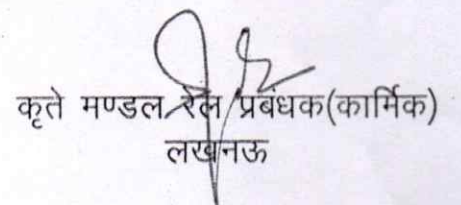 कृते मण्डल रेल प्रबंधक(कार्मिक)
लखनऊ